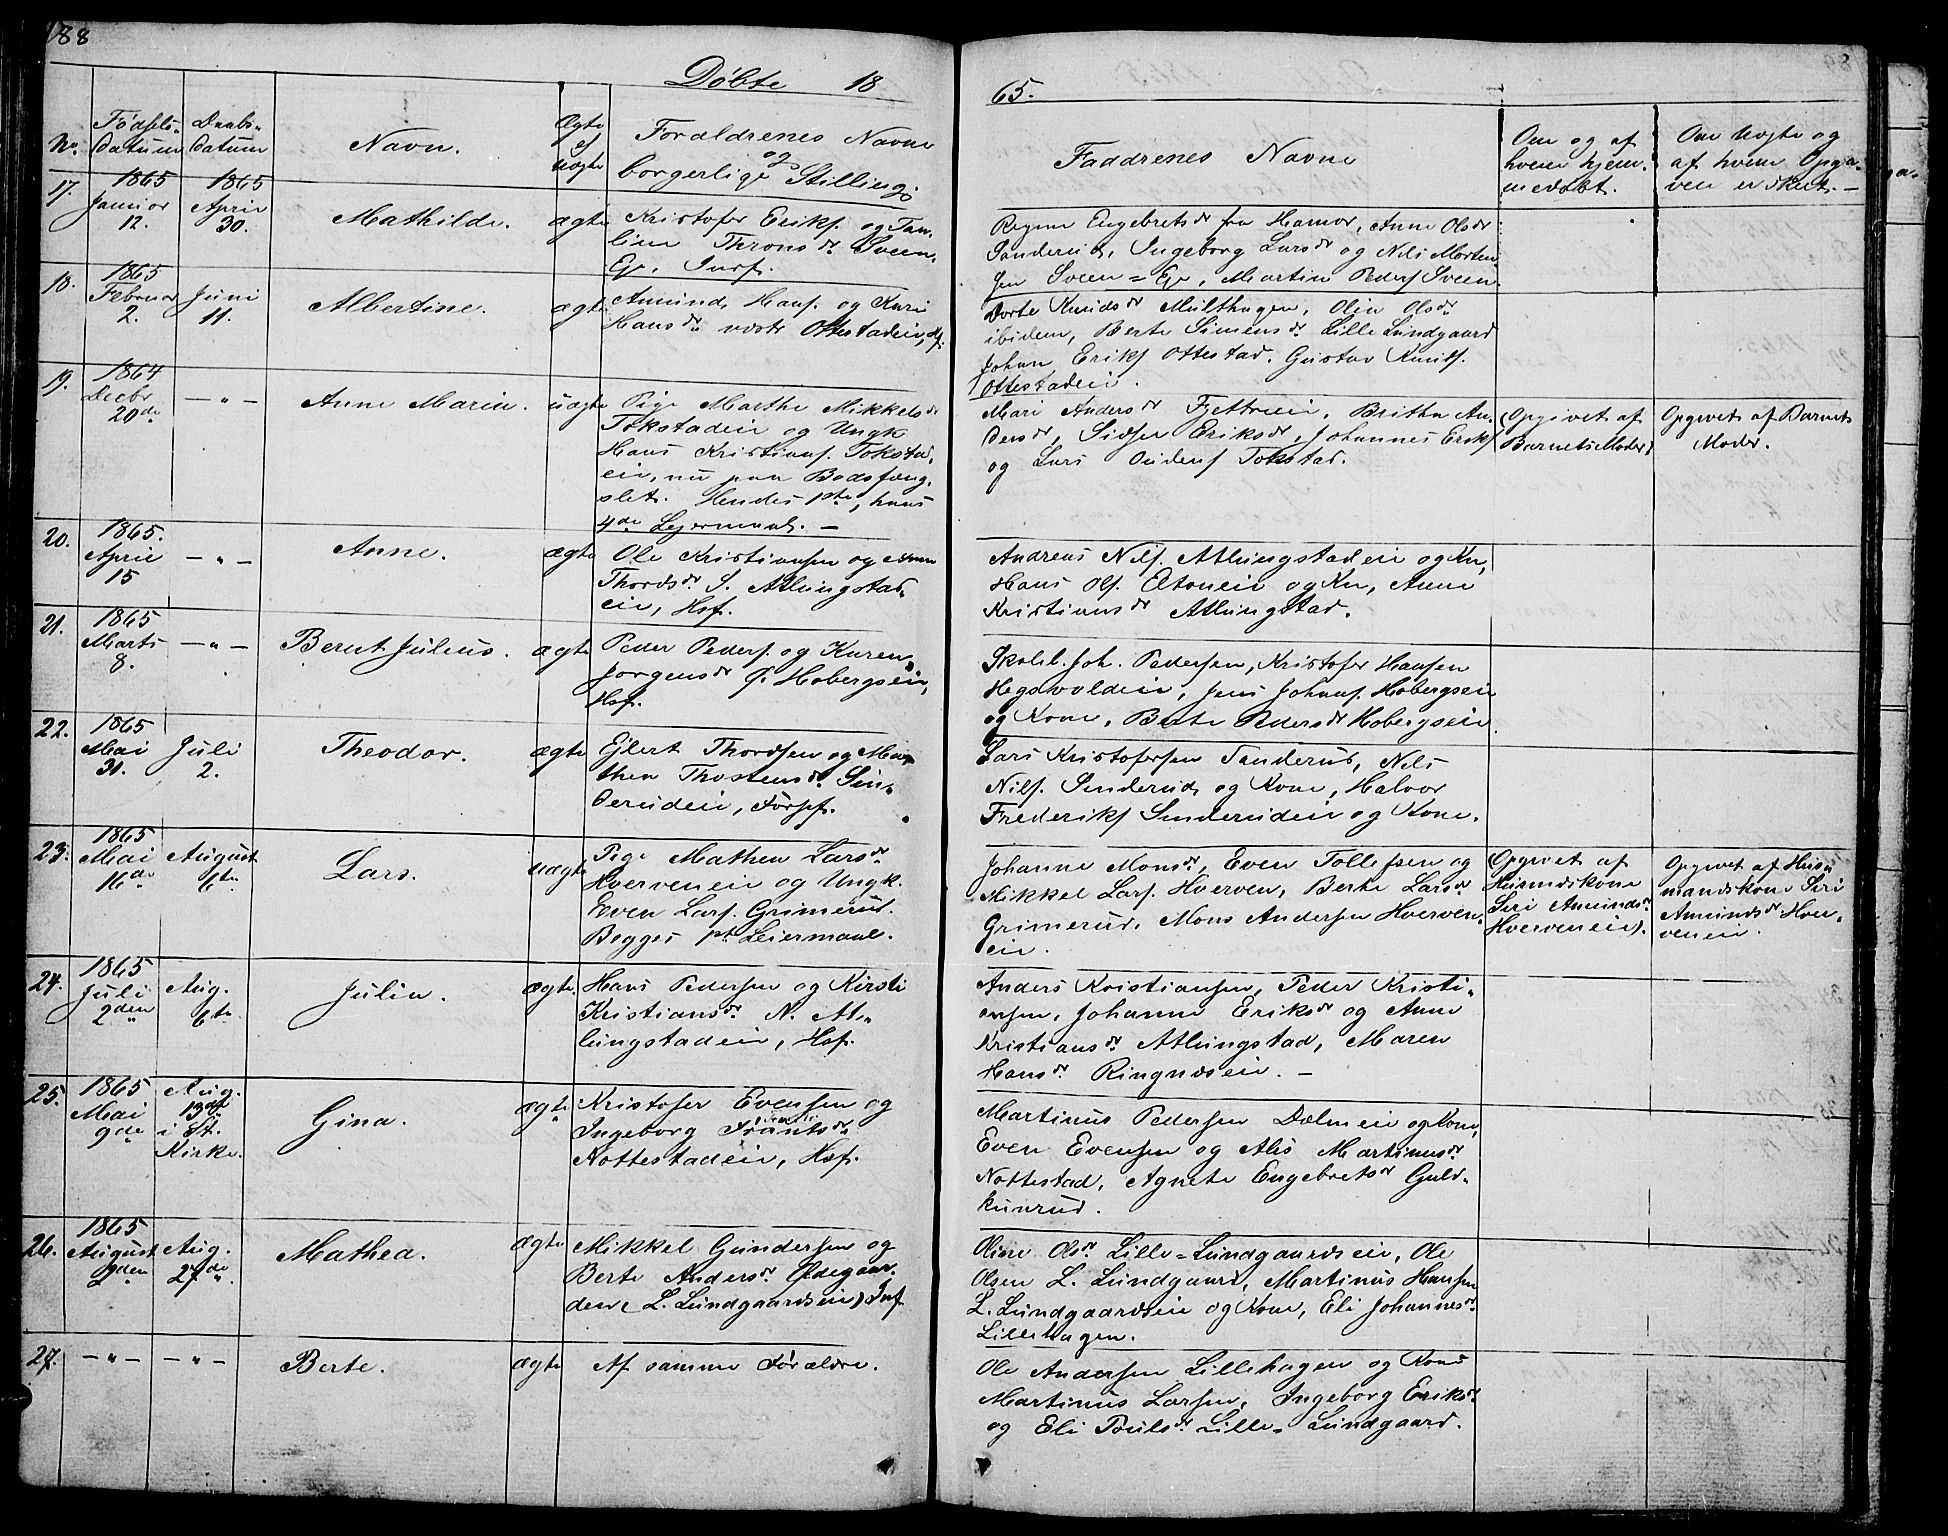 88
Døbte 18
65.
No.
Fødsels-
datum
Daabs-
datum
Navn.
Ægte
el
uægte
Forældrenes Navne
og
borgerlige Stilling.
Faddrenes Navne
Om og af
hvem hjem-
medøbt.
Om Uægte og
af hvem Opga-
ven er skeet. —
17.
1865
Januar
12.
1865
April
30.
Mathilde.
ægte
Kristofer Eriks. og Pau-
line Throns dr. Sveen-
Eje. Indf.
Regine Engebrets dr fra Hamar, Anne Ols dr
Sanderud, Ingeborg Lars dr og Nils Morten
sen Sveen=Eje, Martin Peders Sveen.
18.
1865
Februar
2.
Juni
11.
Albertine.
ægte
Amund Hans. og Kari
Hans dr. vestr Ottestadeie,
Dorte Knuds dr Multhagen, Oline Ols dr.
ibidem, Berte Simens dr. Lille Lundgaard
Johan Eriks Ottestad. Gustav Knuds.
Ottestadeie.
19.
1864
Decbr
29de
— " —
Anne Marie.
uægte
Pige Marthe Mikkels dr
Tokstadeie og Ungk
Hans Kristians. Tokstad-
eie, nu paa Bodsfæng-
slet. Hendes 1ste, hans
4de Lejermaal. —
Mari Anders dr Fjettreeie, Britha An-
ders dr, Sidsel Eriks dr, Johannes Eriks
og Lars Oudens Tokstad.
(Opgivet af
Barnets Moder)
Opgivet af Barnets
Moder.
20.
1865.
April
15
— " —
Anne.
ægte
Ole Kristiansen og Anne
Thords dr. S. Atlungstad-
eie, Hsf.
Andreas Nils. Atlungstadeie og Kn,
Hans Ols. Eltoneie og Kn, Anne
Kristians dr Atlungstad.
21.
1865
Marts
8.
— " —
Bernt Julius.
ægte
Peder Peders. og Karen
Jørgens dr Ø. Hobergseie,
Hsf.
Skolel. Joh. Pedersen, Kristofer Hansen
Hegsvoldeie, Jens Johans. Hobergseie
og Kone, Berte Peders dr Hobergseie
22.
1865
Mai
31.
Juli
2.
Theodor.
ægte
Ejlert Thordsen og Mar-
then Thostens dr. Sin-
derudeie,
Lars Kristofersen Sanderud, Nils
Nils. Sinderud og Kone, Halvor
Frederiks Sinderudeie og Kone.
23.
1865
Mai
16de
August
6te
Lars.
uægte
Pige Mathea Lars dr.
Hverveneie og Ungk.
Even Lars. Grimerud.
Begges 1ste Leiermaal.
Johanne Mons dr, Even Tollefsen og
Mikkel Lars. Hverven, Berte Lars dr
Grimerud, Mons Andersen Hverven-
eie.
(Opgivet af
Husmdskone
Siri Amunds dr.
Hverveneie).
Opgivet af Hus-
mandskone Siri
Amunds dr Hver-
veneie.
24.
1865
Juli
2den
Aug.
6te.
Julia.
ægte.
Hans Pedersen og Kirsti
Kristians dr. N. At-
lungstadeie, Hsf.
Anders Kristiansen, Peder Kristi-
ansen, Johanne Eriks dr og Anne
Kristians dr Atlungstad, Maren
Hans dr. Ringnæseie. —
25.
1865
Mai
9de
Aug.
13de
i St.
Kirke.
Gina.
ægte
Kristofer Evensen og
Ingeborg
Nottestadeie, Hsf.
Martinus Pedersen Dælneeie og Kone,
Even Evensen og Alis Martinus dr.
Nottestad, Agnete Engebrets dr Guld-
kunrud.
26.
1865
August
2den
Aug.
27de.
Mathea.
ægte
Mikkel Gundersen og
Berte Anders dr. Ødegaar-
den (L. Lundgaardseie) Inf.
Oline Ols dr. Lille=Lundgaardseie, Ole
Olsen L. Lundgaard, Martinus Hansen
L. Lundgaardseie og Kone, Eli Johannes dr.
Lillehagen.
27.
— " —
— " —
Berte.
ægte
Af samme Forældre.
Ole Andersen Lillehagen og Kone
Martinus Larsen, Ingeborg Eriks dr.
og Eli Pouls dr. Lille=Lundgaard.